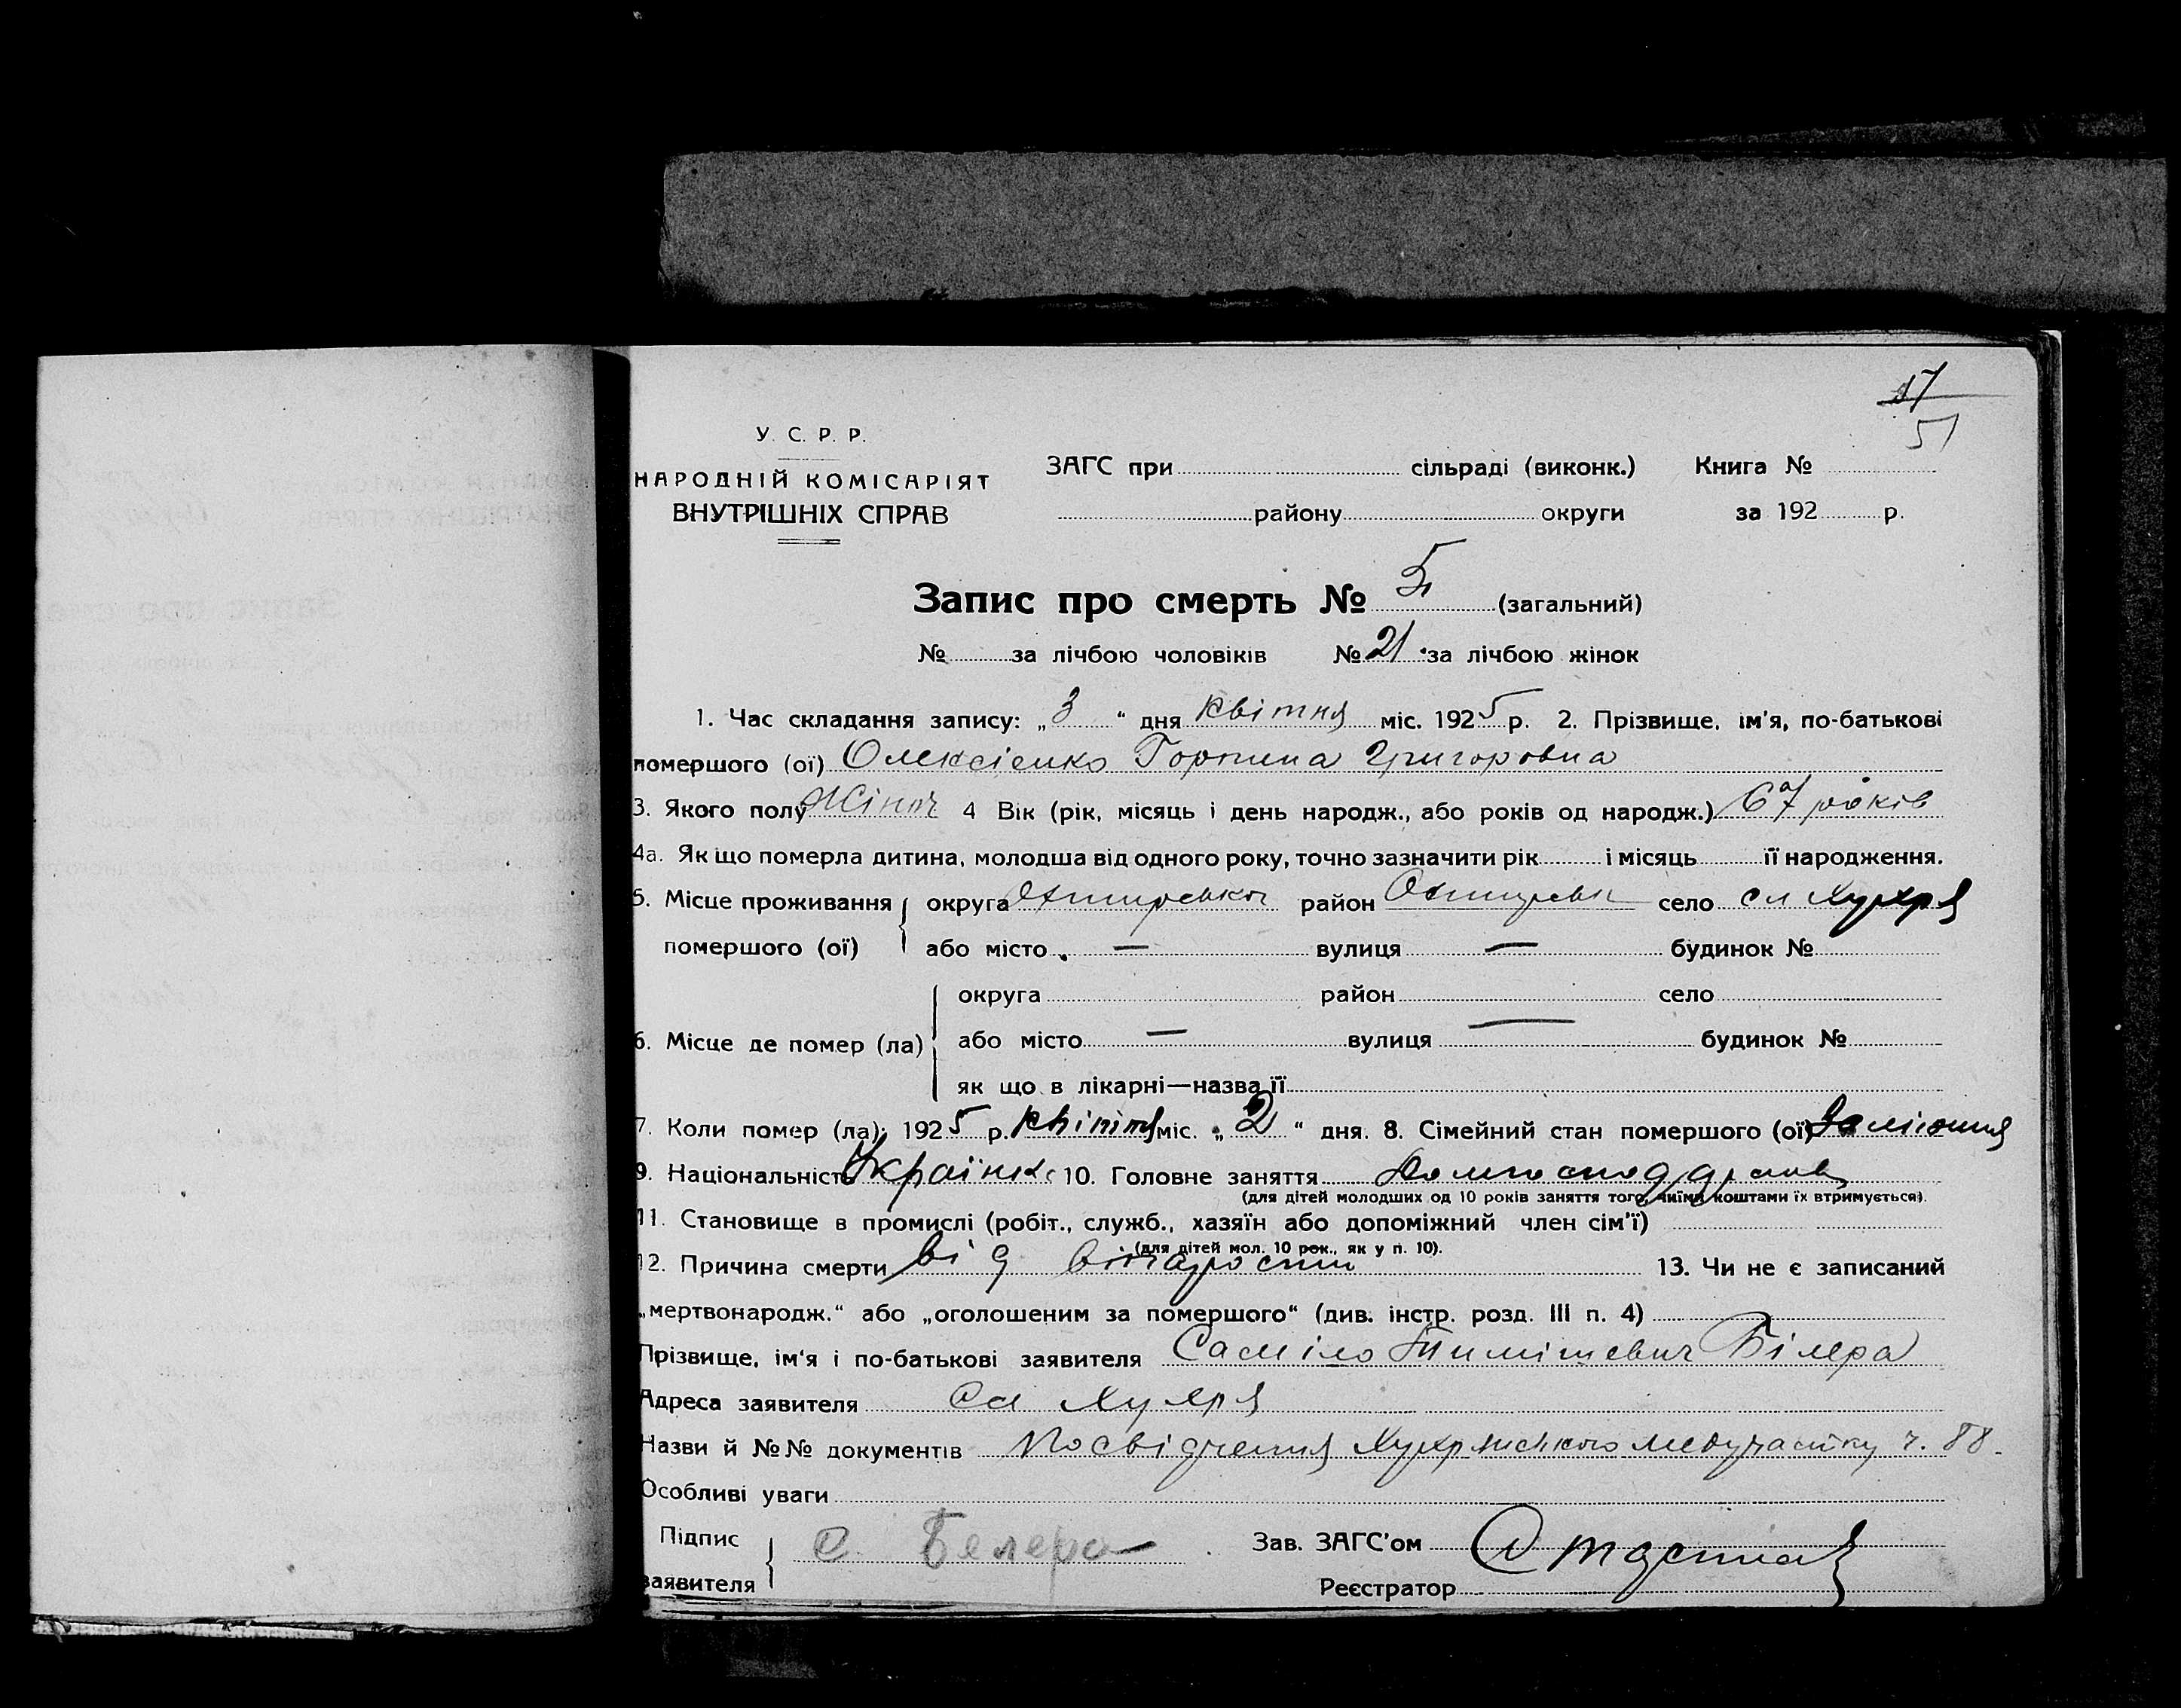 51
У. С. Р. Р.
НАРОДНІЙ КОМІСАРІЯТ
ВНУТРІШНІХ СПРАВ
ЗАГС при сільраді (виконк.) Книга №
району округи за 192 р.
Запис про смерть № 5 (загальний)
№ за лічбою чоловіків № 21 за лічбою жінок
1. Час складання запису: „3“ дня квітня міс. 1925 р. 2. Прізвище, ім'я, по-батькові
помершого (ої) Олексієнко Горпина Григоровна
3. Якого полу Жіноч 4 Вік (рік, місяць і день народж., або років од народж.) 67 років
4а. Як що померла дитина, молодша від одного року, точно зазначити рік і місяць її народження.
5. Місце проживання округа район село сл Хухря
помершого (ої) або місто — вулиця — будинок №
округа район село
6. Місце де помер (ла) або місто — вулиця — будинок №
як що в лікарні—назва її
7. Коли помер (ла): 1925 р. квітня міс. „2“ дня. 8. Сімейний стан помершого (ої)
9. Національність Українка 10. Головне заняття
(для дітей молодших од 10 років заняття того, чиїми коштами їх втримується).
11. Становище в промислі (робіт., служб., хазяїн або допоміжний член сім'ї)
(для дітей мол. 10 рок., як у п. 10).
12. Причина смерти від 13. Чи не є записаний
„мертвонародж.“ або „оголошеним за помершого“ (див. інстр. розд. III п. 4)
Прізвище, ім'я і по-батькові заявителя Саміло Тимішевич Білера
Адреса заявителя Сл Хухря
Назви й №№ документів Посвідчення Хухрянського медучастку ч. 88.
Особливі уваги
Підпис заявителя С. Белера Зав. ЗАГС'ом
Реєстратор